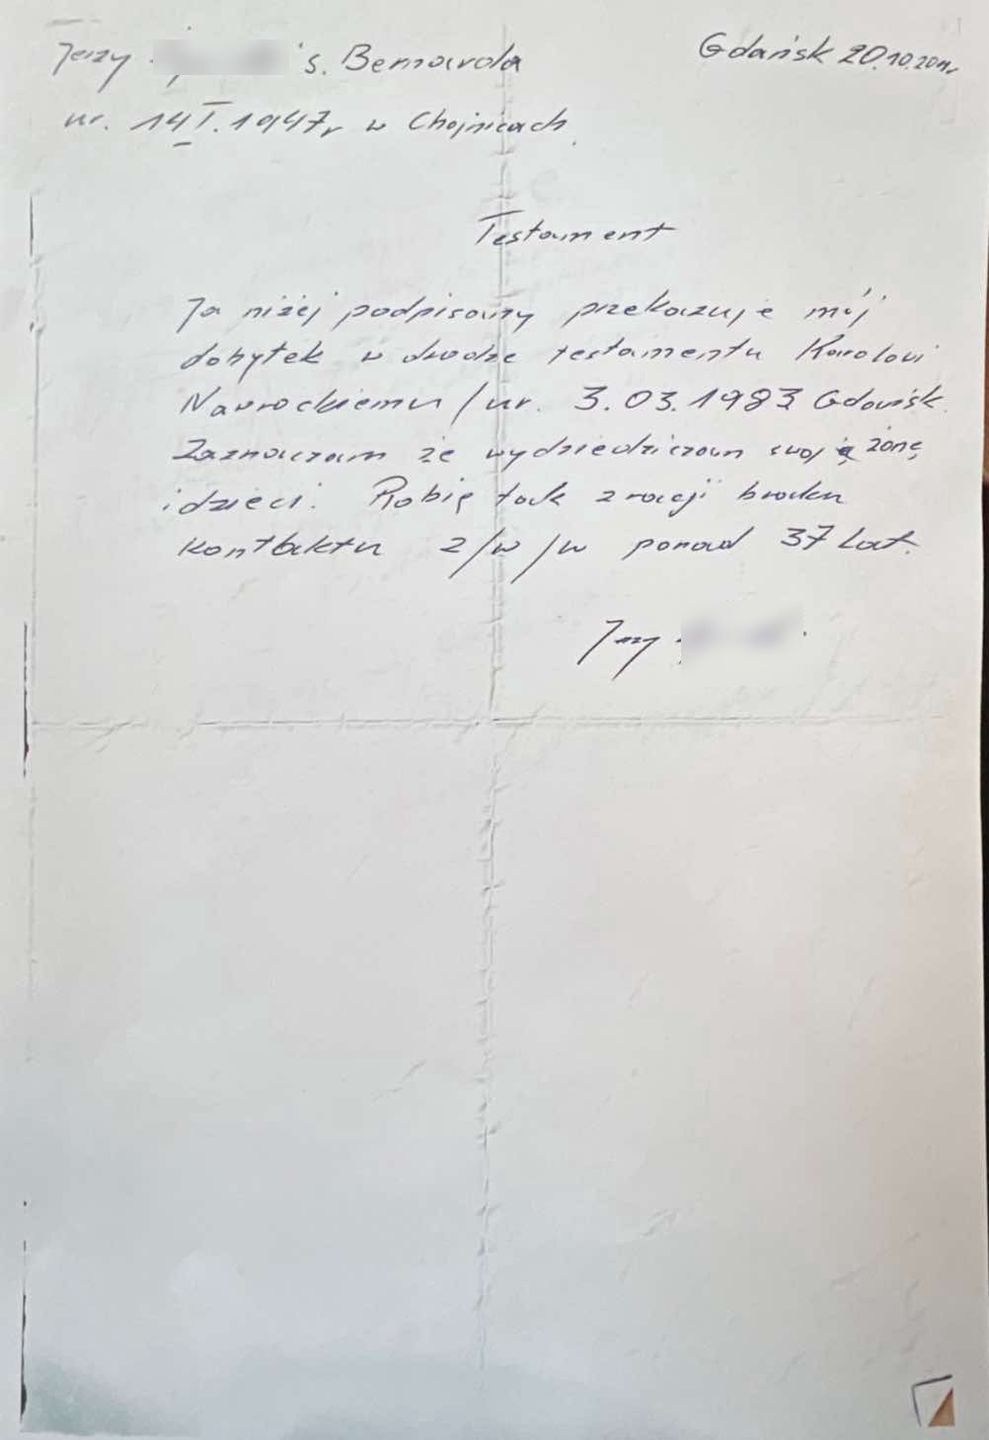 Jerzy s. Bernarda Gdańsk 20.10.2011r
ur. 14 I. 1947r w Chojnicach.
Testament
Ja niżej podpisany przekazuje mój
dobytek w drodze testamentu Karolowi
Nawrockiemu /ur. 3.03.1983 Gdańsk.
Zaznaczam że wydziedziczam swoją żonę
i dzieci. Robię tak z racji braku
kontaktu z /w /w ponad 37 lat.
Jerzy